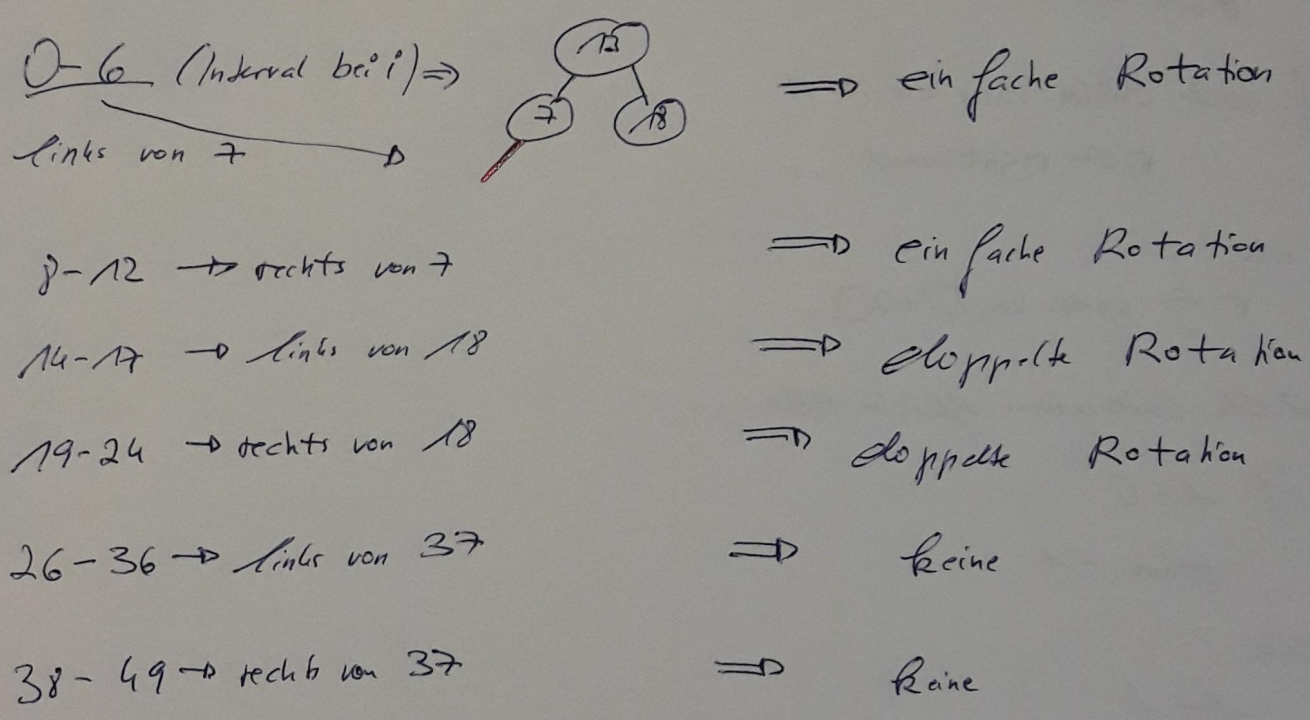 0-6 (Interval bei i) => 13 => einfache Rotation
7 18
links von 7
8-12 → rechts von 7 => einfache Rotation
14-17 → links von 18 => doppelte Rotation
19-24 → rechts von 18 => doppelte Rotation
26-36 → links von 37 => keine
38-49 → rechts von 37 => keine